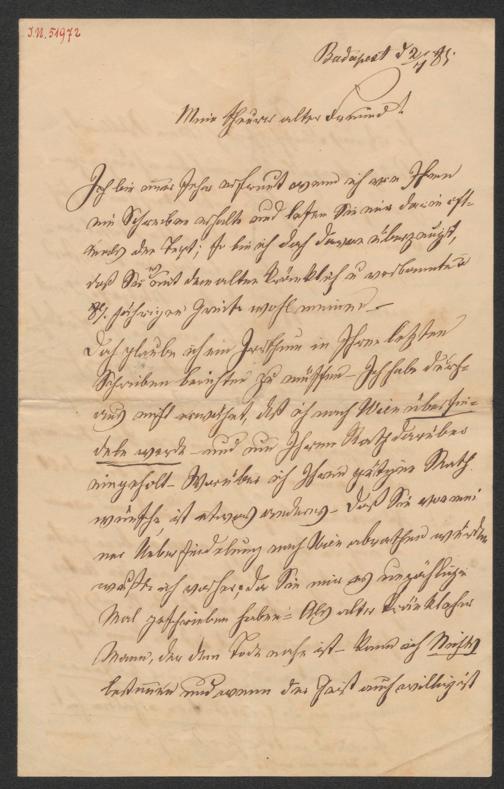 J.N. 51972
Budapest d 2/7 85.
Mein theurer alter Freund!
Ich bin immer sehr erfreut wenn ich von Ihnen
ein Schreiben erhalte und lesen Sie mir darin oft-
mals den Text; so bin ich doch davon überzeugt,
daß Sie es mit dem alten kränklich u verbannten
jährigen Greise wohl meinen –
Doch glaube ich ein Irrthum in Ihren letzten
Schreiben berichten zu müssen – Ich habe durch-
aus nicht erwähnt, daß ich nach Wien übersie-
deln werde – und um Ihren Rath darüber
eingeholt – Worüber ich Ihren gütigen Rath
wünsche ist etwas anderes – Daß Sie von mei
ner Uebersiedelung nach Wien abrathen würden
wußte ich vorher, da Sie mir es unzählige
Mal geschrieben haben – Als alter kränklicher
Mann, der dem Tode nahe ist – kann ich Nichts
bestimmen und wenn der Geist auch willig ist